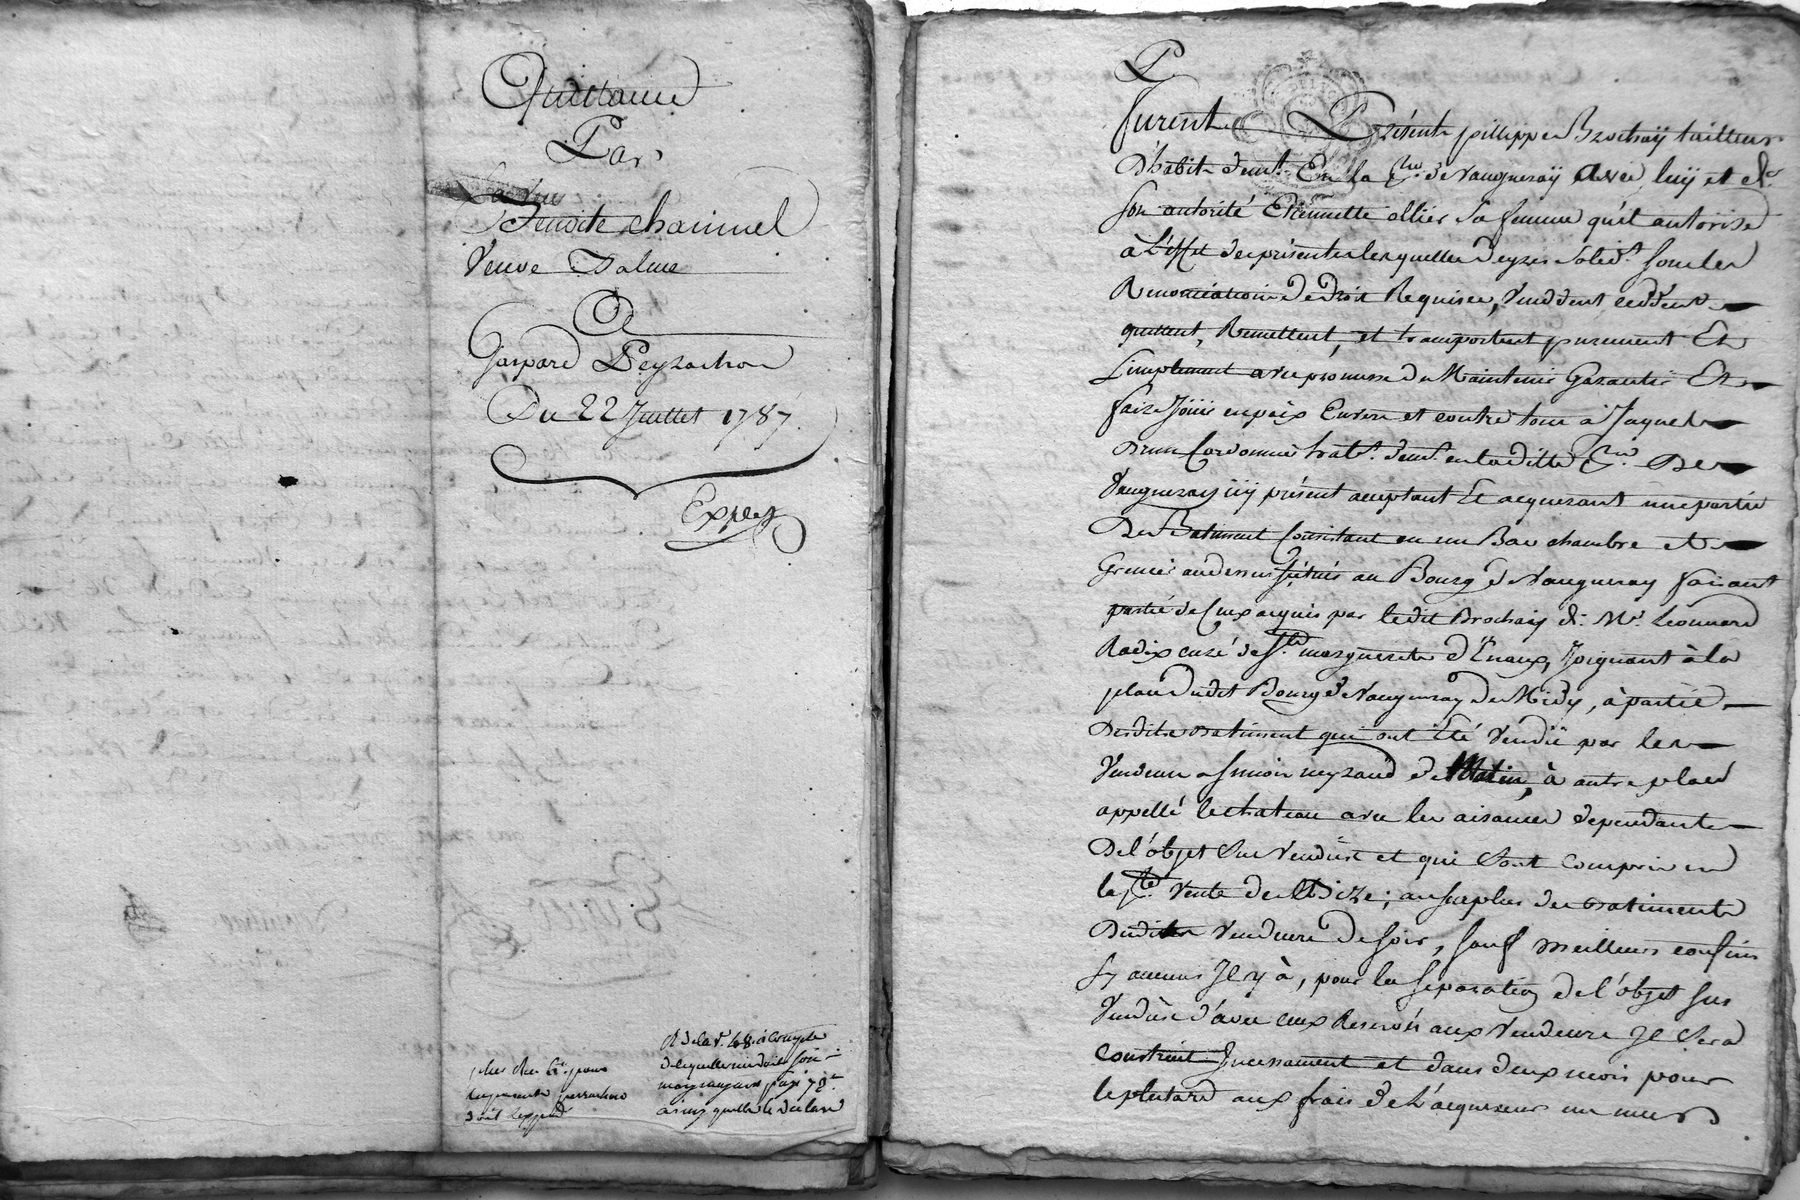 Quittance
Par
La vve
Benoite chainnel
Veuve Dalme
A
Gaspard Peyrachon
Du 22 Juillet 1787.
Exped
plus du
dû expéd
de laquelle
ainsy qu'elle le déclare
P
Furent Présents phillippe Brochaÿ tailleur
D'habit demt. En la de Vaugneraÿ avec luÿ et de
son autorité Etiennette ollier Sa femme qu'il autorise
à L'effet des présentes lesquelles Solid. sous les
Renonciations de droit Requises, Vendent cèddent
quittent, Remettent, et transportent purement Et
Simplement avec promesse de Maintenir Garantir Et
faire Jouir en paix Envers et contre tous à Jaques
Brun Cordonnier habt. demt. en laditte De
Vaugneray icy présent acceptant Et acquerant une partie
De Batiment Consistant en un Bas chambre et
Grenier au dessus scitués au Bourg de Vaugneray faisant
partie de Ceux acquis par ledit Brochaÿ de Mr. Léonnard
Radix curé de Ste. marguerite d'Enaux, Joignant à la
place dudit Bourg de Vaugneray de Midy, à partie
Desdits Batiment qui ont Eté Vendü par les
Vendeurs a neyraud de Matin, à autre place
appellé le chateau avec les aisances dependante
De l'objet Sus Vendu et qui Sont compris en
la ste. Vente de Bize; au surplus des Batiments
Desdits Vendeurs de soir, sauf meilleurs confins
Sy aucuns Il y à, pour la separation de l'objet sus
Vendus d'avec ceux Reservés aux Vendeurs Il Sera
Construit Incessament et dans deux mois pour
le plutard aux frais de L'acquereur un mur